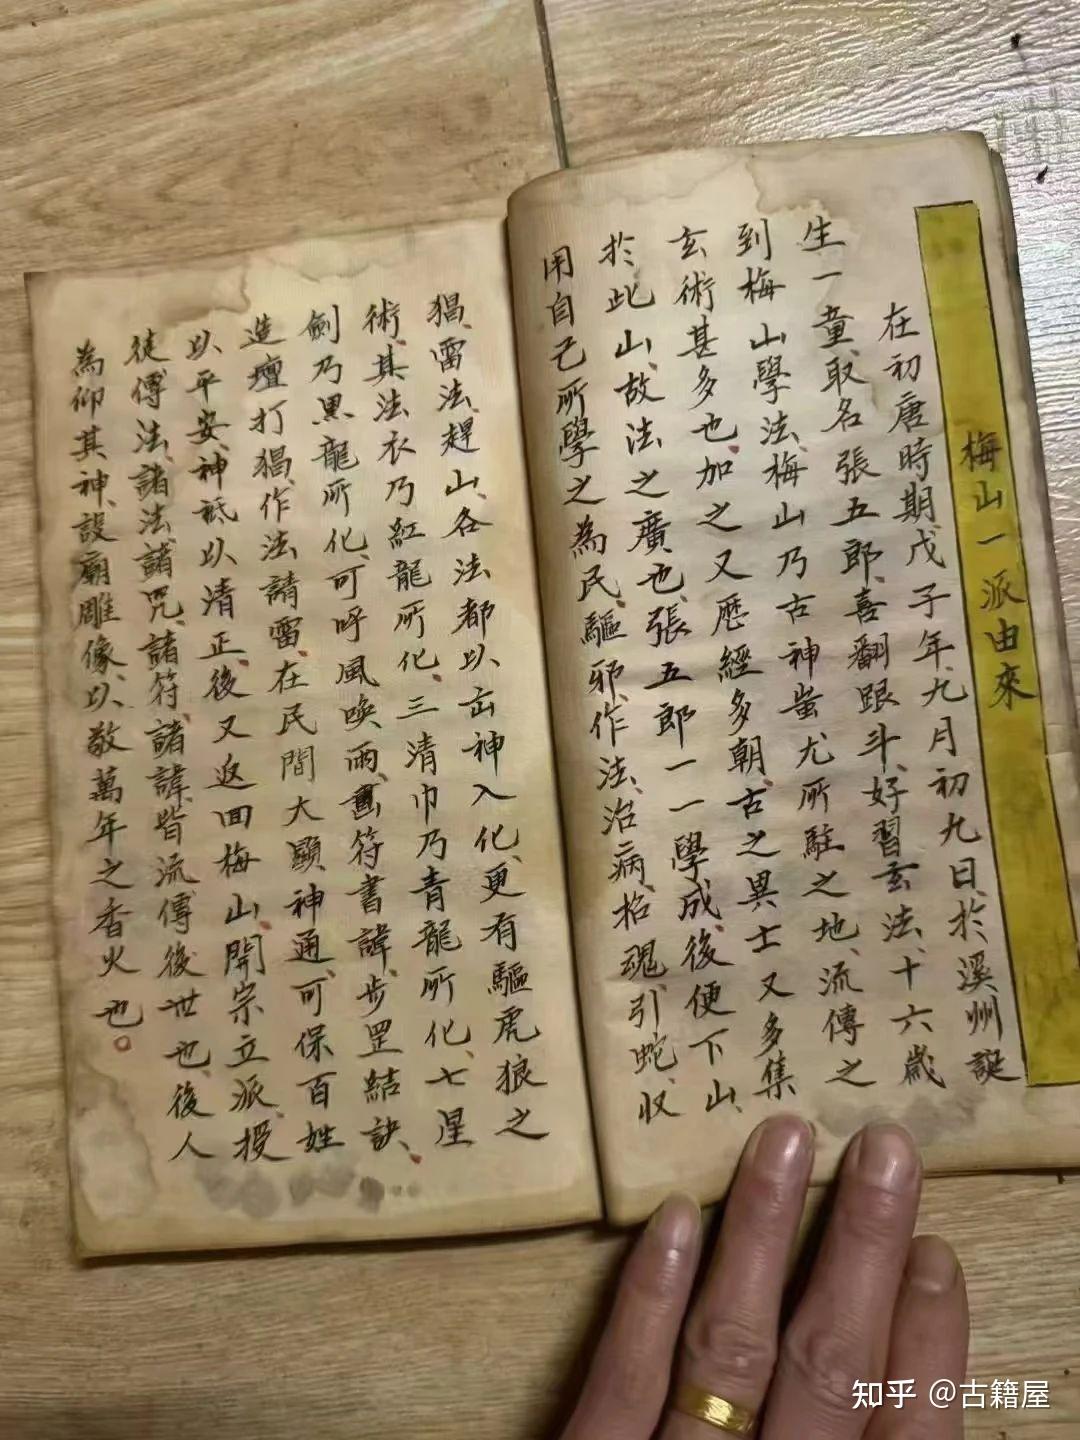 梅山一派由來
在初唐時期、戊子年、九月初九日、於溪州誕
生一童、取名張五郎、喜翻跟斗、好習玄法、十六歲
到梅山學法、梅山乃古神蚩尤所駐之地、流傳之
玄術甚多也、加之又歷經多朝、古之異士又多集
於此山、故法之廣也、張五郎一一學成、後便下山、
用自己所學之為民、驅邪、作法、治病、招魂、引蛇、收
猖、雷法、趕山、各法都以出神入化、更有驅虎狼之
術、其法衣乃紅龍所化、三清巾乃青龍所化、七星
劍乃黑龍所化、可呼風喚雨、畫符書諱、步罡結訣、
造壇打猖、作法請雷、在民間大顯神通、可保百姓
以平安、神祗以清正、後又返回梅山、開宗立派、授
徒傳法、諸法、諸咒、諸符、諸諱、皆流傳後世也、後人
為仰其神、設廟雕像、以敬萬年之香火也。
知乎 @古籍屋